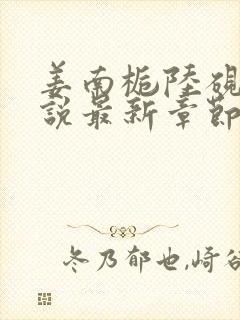 姜南梔陸硯
說最新章節
冬乃郁也,崎谷